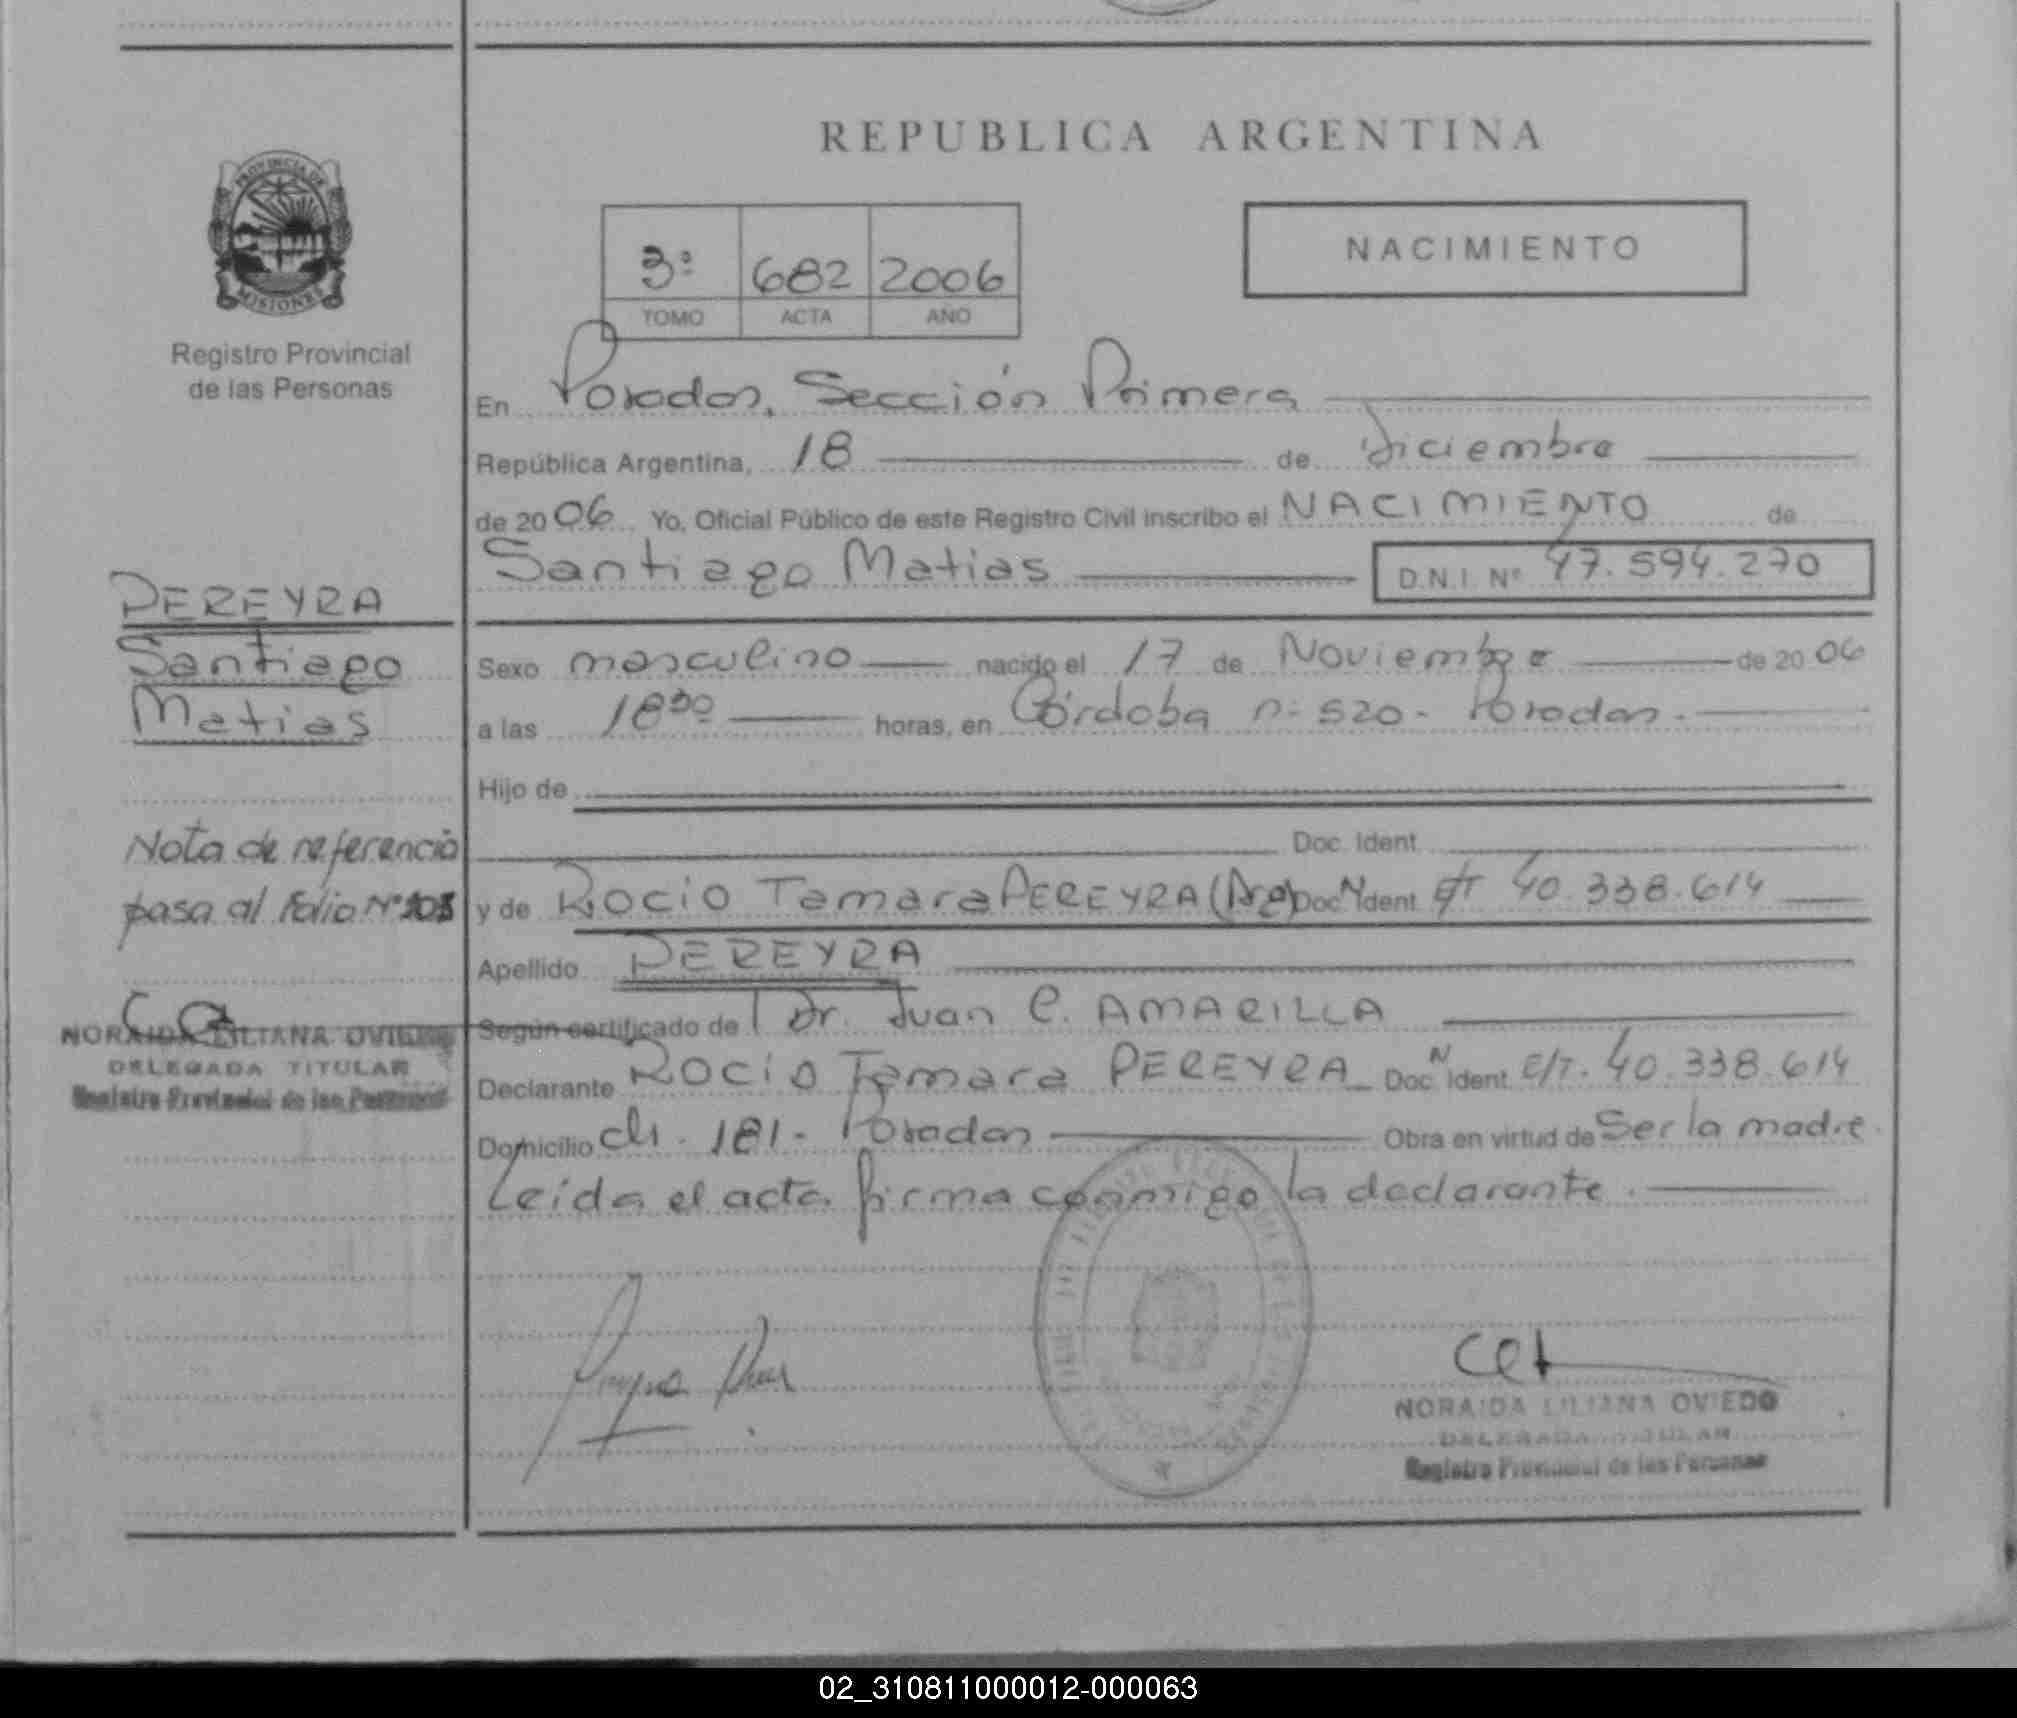 REPUBLICA ARGENTINA
PROVINCIA DE
MISIONES
Registro Provincial
de las Personas
NACIMIENTO
3º 682 2006
TOMO ACTA AÑO
En Posadas, Sección Primera
República Argentina, 18 de Diciembre
de 2006 Yo, Oficial Público de este Registro Civil inscribo el NACIMIENTO de
Santiago Matias D.N.I. Nº 47.594.270
PEREYRA
Santiago
Matias
Sexo masculino nacido el 17 de Noviembre de 2006
a las 18 30 horas, en Córdoba nº 520 - Posadas.
Hijo de
Doc. Ident.
Nota de referencia
pasa al folio Nº
y de Rocio Tamara PEREYRA (Arg) Doc. N Ident. E/T 40.338.614
Apellido PEREYRA
Según certificado de Dr. Juan C. AMARILLA
NORAIDA LILIANA OVIEDO
DELEGADA TITULAR
Registro Provincial de las Personas
Declarante Rocio Tamara PEREYRA Doc. N Ident. E/T. 40.338.614
Domicilio Ch. 181 - Posadas Obra en virtud de Ser la madre.
Leída el acta firma conmigo la declarante.
NORAIDA LILIANA OVIEDO
DELEGADA TITULAR
Registro Provincial de las Personas
02_310811000012-000063